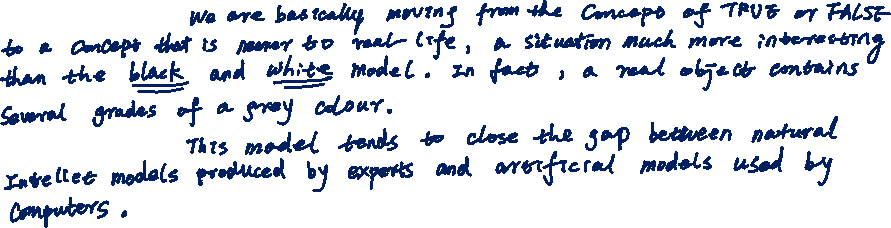 We are basically moving from the Concept of TRUE or FALSE
to a concept that is nearer to real-life, a situation much more interesting
than the black and white model. In fact, a real object contains
Several grades of a grey colour.
This model tends to close the gap between natural
Intellet models produced by experts and artificial models used by
Computers.